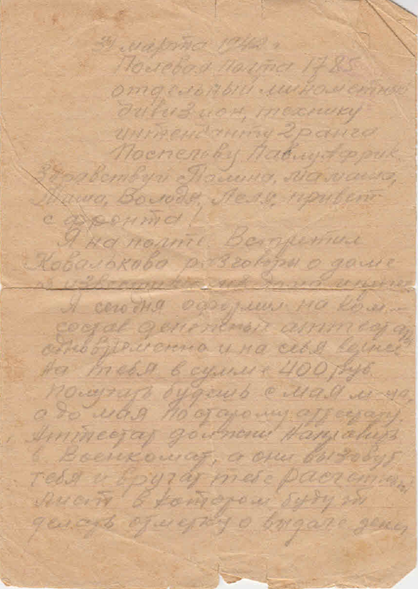 марта 1942 г
Полевая почта 1785
отдельный минометн
дивизион, технику
интенданту 2 ранга
Поспелову Павлу Африк.
Здравствуй Галина, мамаша,
Тама, Володя, Леля, привет
с фронта!
Я на почте. Встретил
Ковалькова разговоры о доме
Я сегодня оформил на ком.
состав денежный аттестат
одновременно и на себя
на тебя в сумме 400 руб.
получать будешь с мая м-ца
а до мая по старому аттестату
Аттестат должны направить
в Военкомат, а они вызовут
тебя и вручат тебе Расчетный
лист в котором будут
делать отметку о выдаче денег